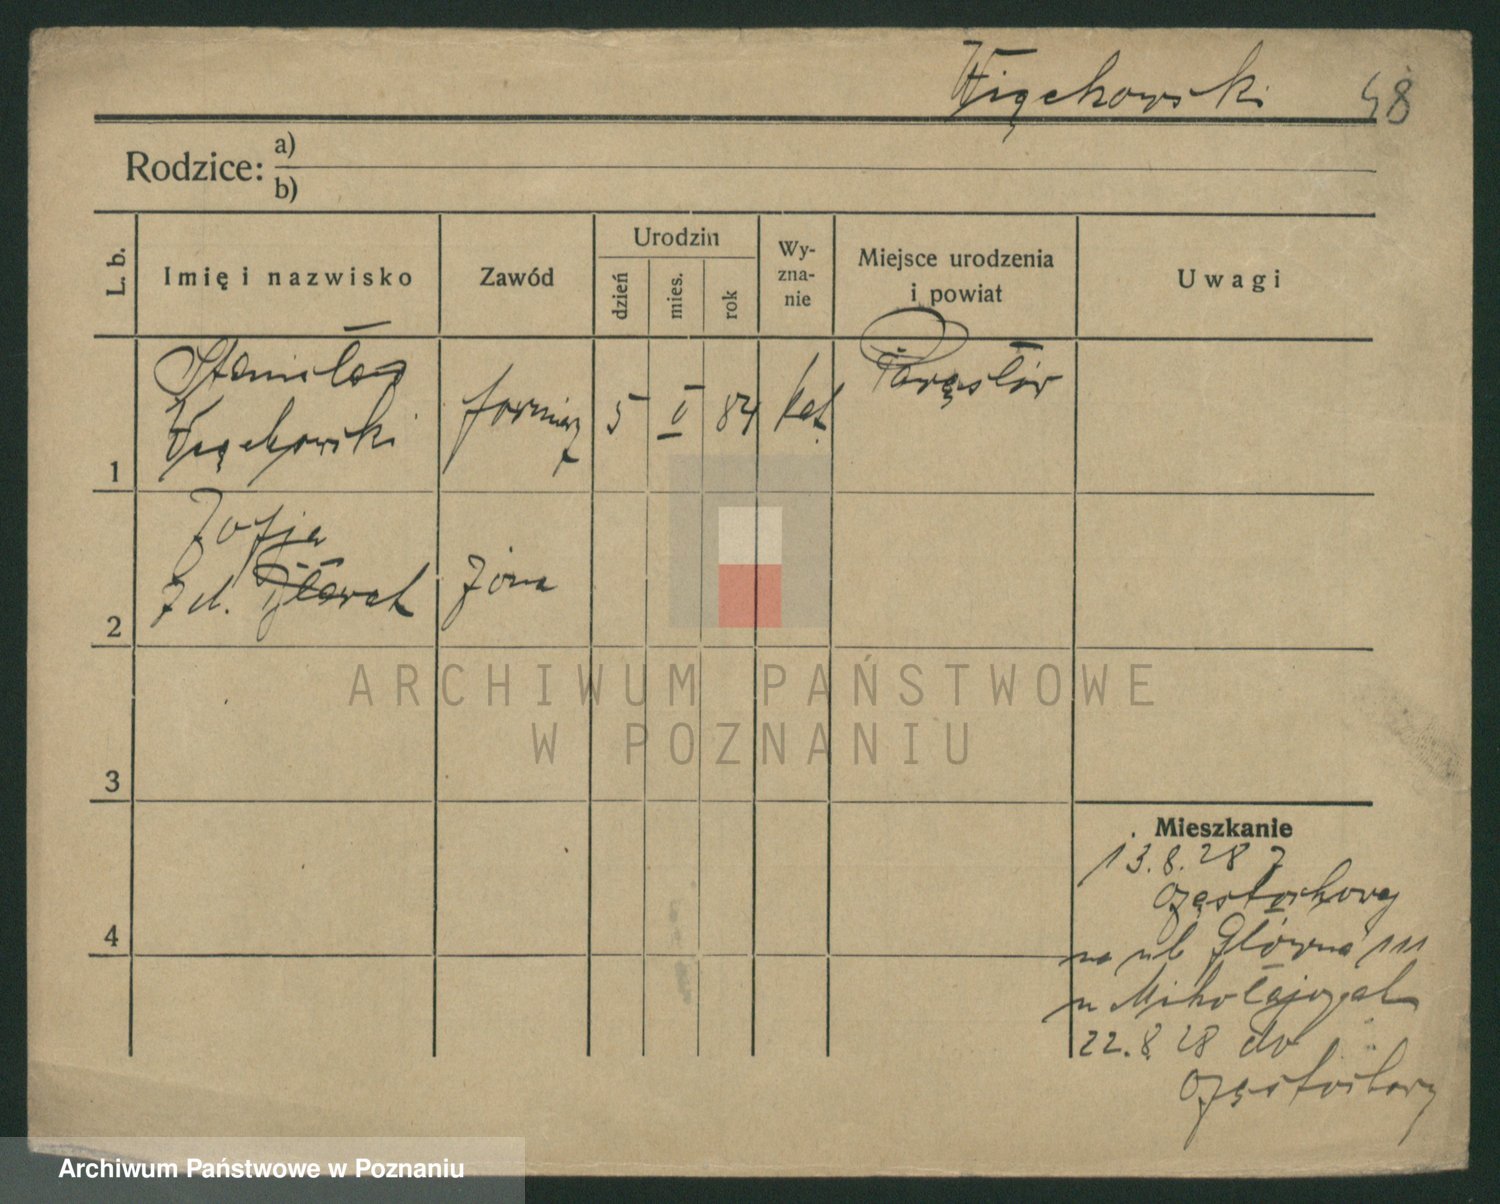 Więckowski 48
Rodzice: a)
b)
L. b.
Imię i nazwisko
Zawód
Urodzin
dzień
mies.
rok
Wy-
zna-
nie
Miejsce urodzenia
i powiat
Uwagi
1
Stanisław
Więckowski
formierz
5
V
84
kat.
2
Zofja
żona
3
4
Mieszkanie
13.8.28 z
Częstochowy
na ul Główna 111
u Mikołajczak
22.8.28 do
Częstochowy
ARCHIWUM PAŃSTWOWE
W POZNANIU
Archiwum Państwowe w Poznaniu